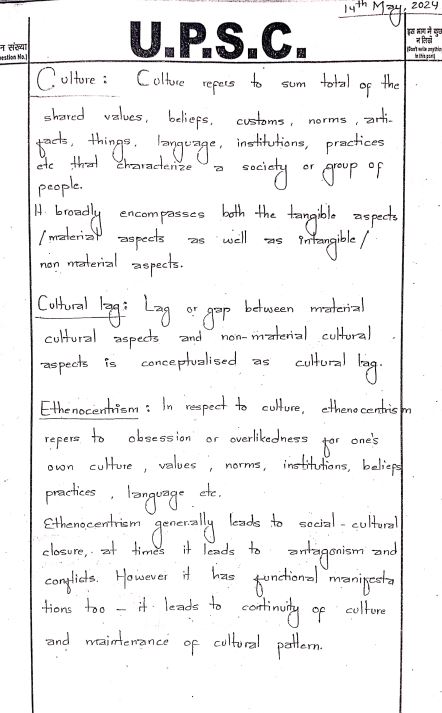 14th May, 2024
U.P.S.C.
न संख्या
estion No.)
इस भाग में कुछ
न लिखें
(Don't write anything
in this part)
Culture : Culture refers to sum total of the
shared values, beliefs, customs, norms, arti-
facts, things, language, institutions, practices
etc that characterize a society or group of
people.
It broadly encompasses both the tangible aspects
/material aspects as well as intangible/
non material aspects.
Cultural lag: Lag or gap between material
cultural aspects and non-material cultural
aspects is conceptualised as cultural lag.
Ethenocentrism : In respect to culture, ethenocentrism
refers to obsession or overlikedness for one's
own culture, values, norms, institutions, beliefs
practices, language etc.
Ethenocentrism generally leads to social-cultural
closure, at times it leads to antagonism and
conflicts. However it has functional manifesta
tions too – it leads to continuity of culture
and maintenance of cultural pattern.